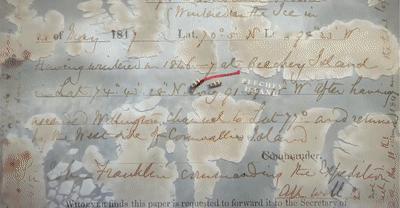 Wintered in the Ice in
28 of May 1847 Lat. 70° 5' N Long 98° 23' W
Having wintered in 1846–7 at Beechey Island
BEECHEY ISLAND
in Lat 74° 43' 28" N Long 91° 39' 15" W After having
ascended Wellington Channel to Lat 77° and returned
by the West side of Cornwallis Island
Commander.
Franklin commanding the Expedition
All well
WHOEVER finds this paper is requested to forward it to the Secretary of